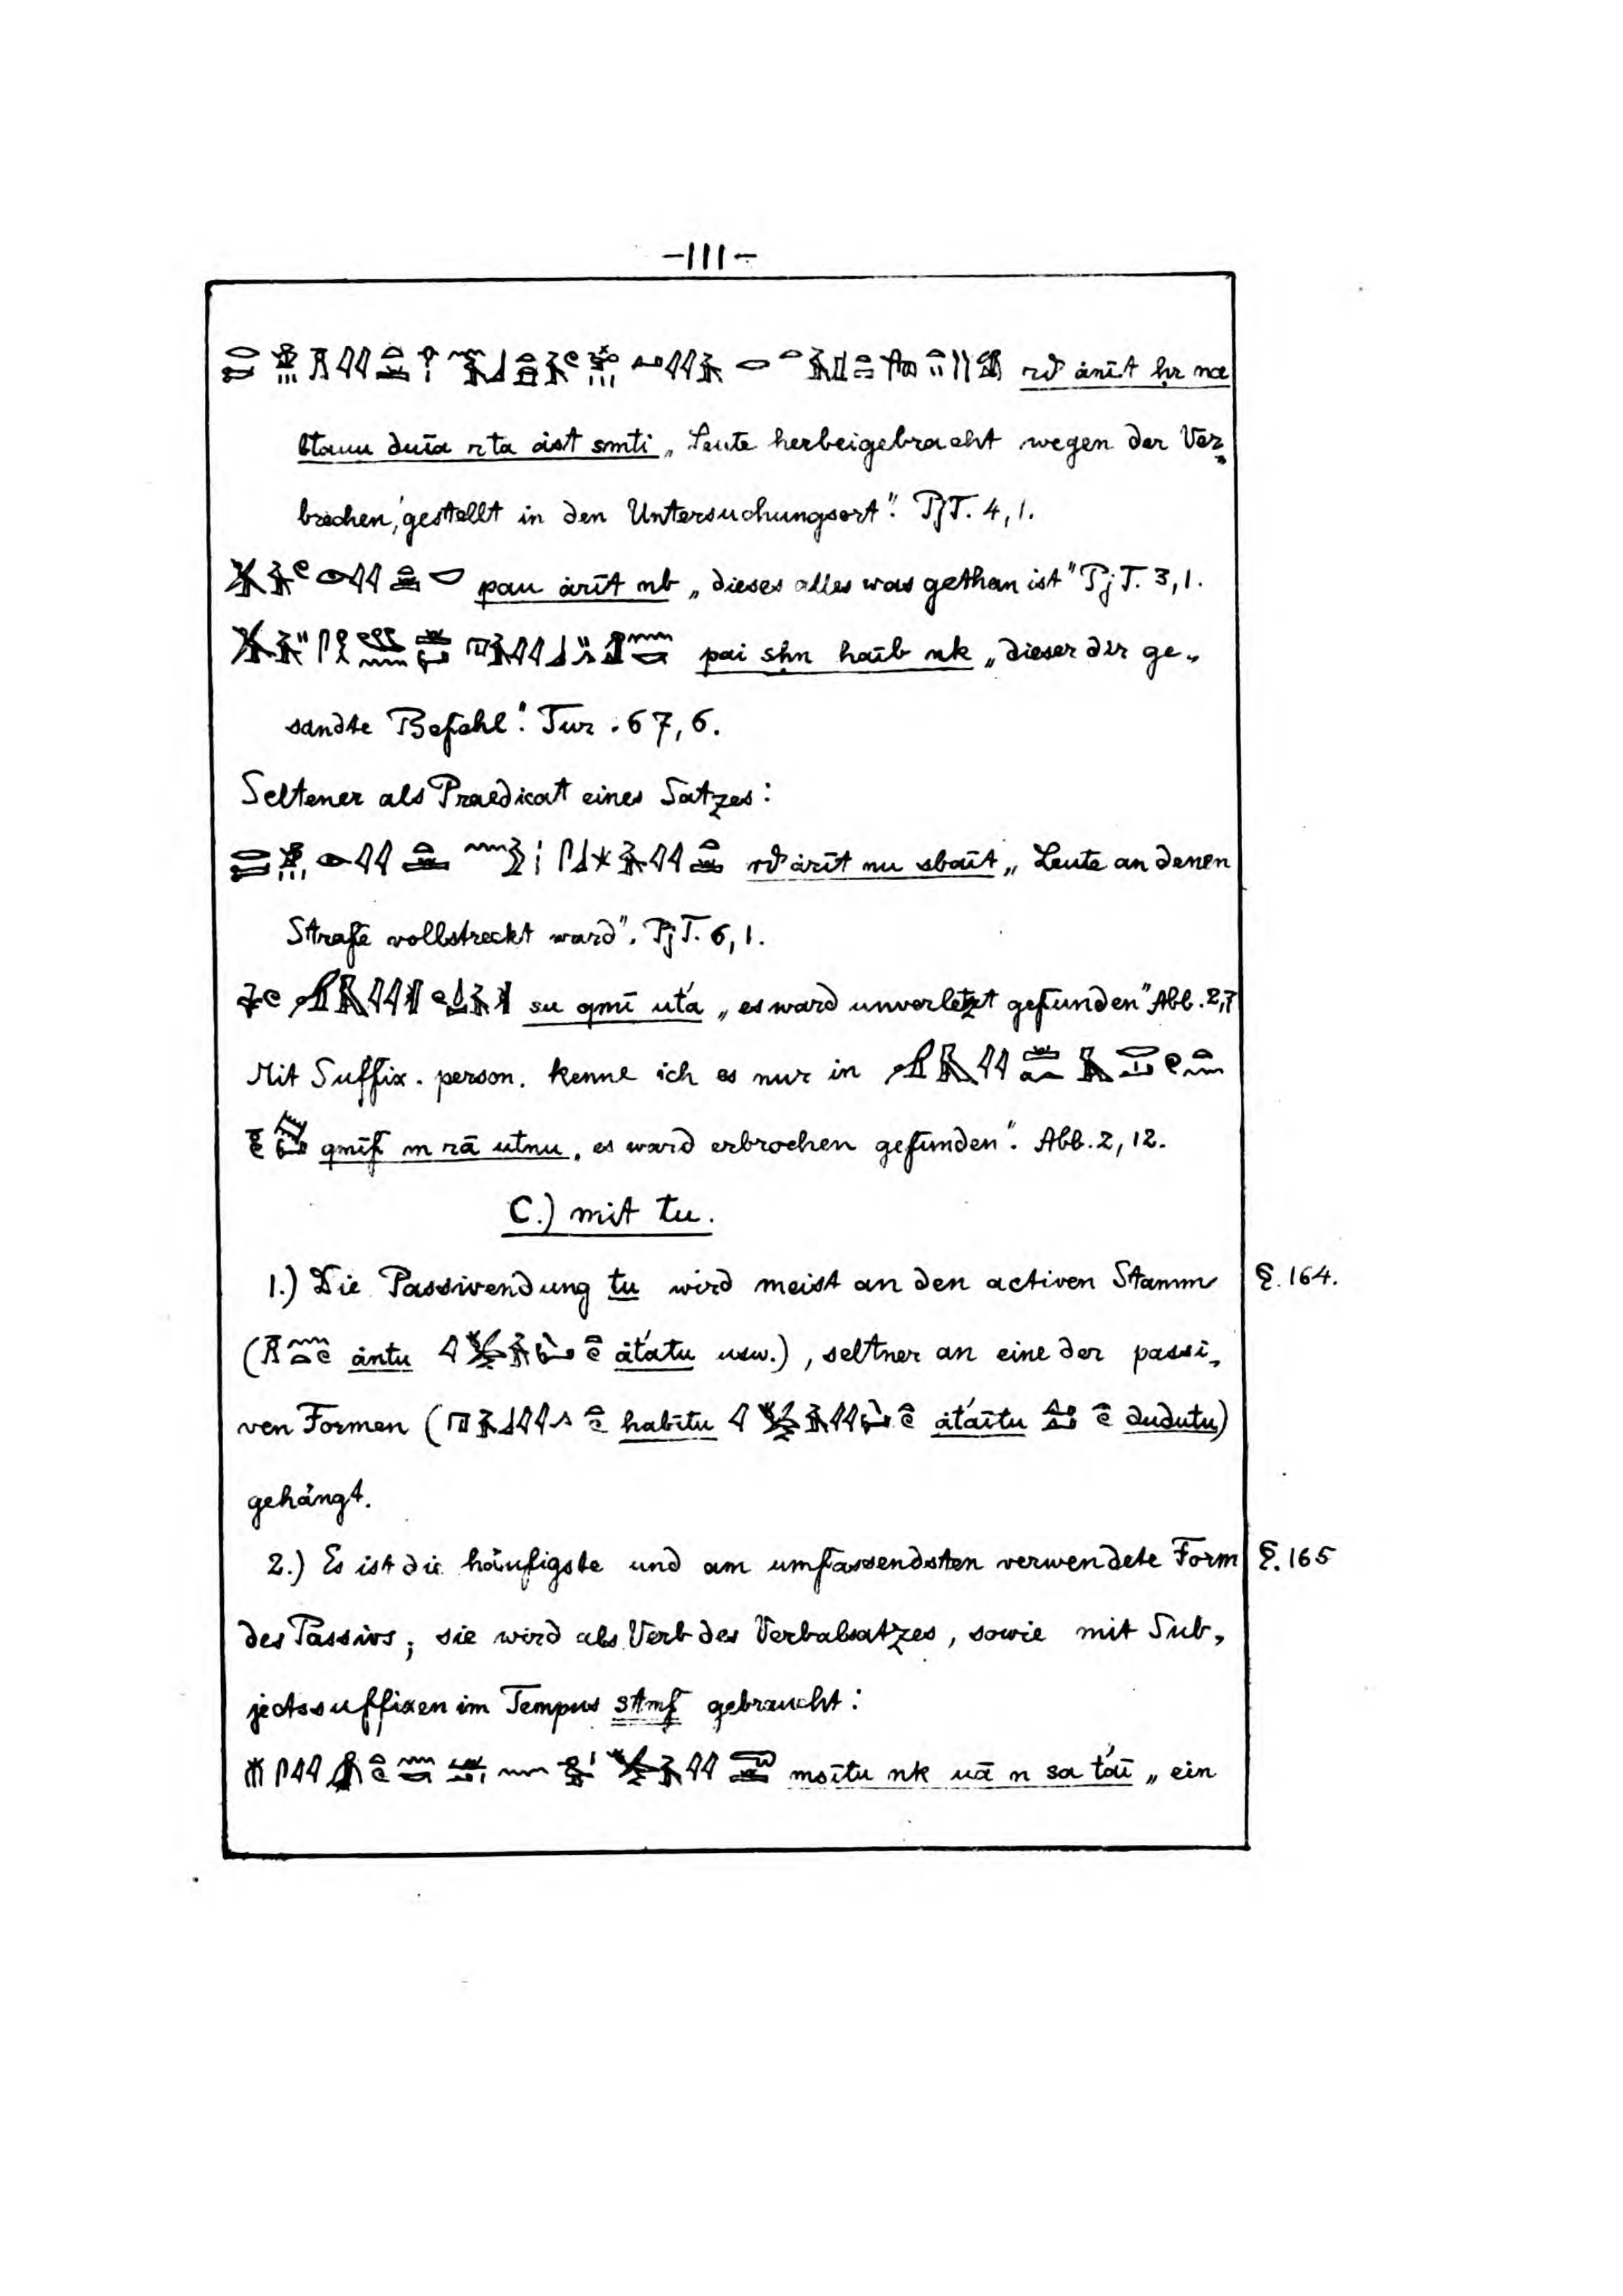 -111-
rθ ȧnīt ḥr na
btauu duīa rta ȧst smti „Leute herbeigebracht wegen der Ver-
brechen, gestellt in den Untersuchungsort". PjT. 4,1.
pau ȧrīt nb „dieses alles was gethan ist" PjT. 3,1.
pai sḥn haīb nk „dieser dir ge-
sandte Befehl". Tur. 67,6.
Seltener als Praedicat eines Satzes:
rθ ȧrīt nu sbaīt „Leute an denen
Strafe vollstreckt ward". PjT. 6,1.
su qmī ut́a „es ward unverletzt gefunden" Abb. 2,7
Mit Suffix. person. kenne ich es nur in
qmīf m rā utnu „es ward erbrochen gefunden". Abb. 2,12.
C.) mit tu.
1.) Die Passivendung tu wird meist an den activen Stamm §. 164.
(ȧntu ȧt́atu usw.), seltner an eine der passi-
ven Formen (habītu ȧt́aītu dudutu)
gehängt.
2.) Es ist die häufigste und am umfassendsten verwendete Form §. 165
des Passivs; sie wird als Verb des Verbalsatzes, sowie mit Sub-
jectssuffixen im Tempus stmf gebraucht:
msītu nk uā n sa t́aī „ein